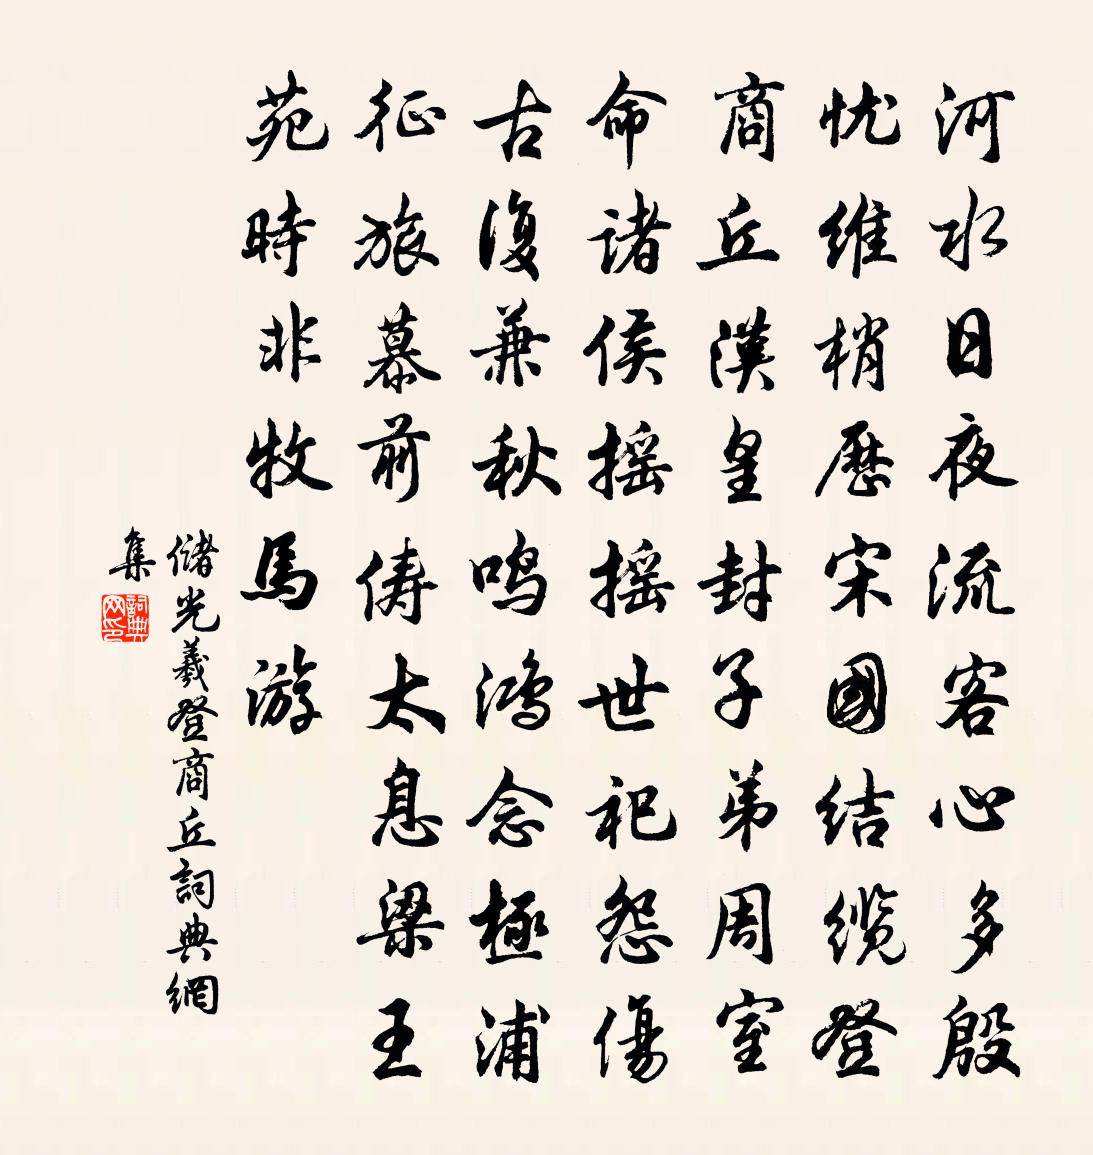 河水日夜流客心多殷
忧维梢歷宋國结缆登
商丘漢皇封子弟周室
命诸侯摇摇世祀怨傷
古復兼秋鸣鸿念極浦
征旅慕前俦太息梁王
苑時非牧馬游
儲光羲登商丘詞典網
集
詞典
网印